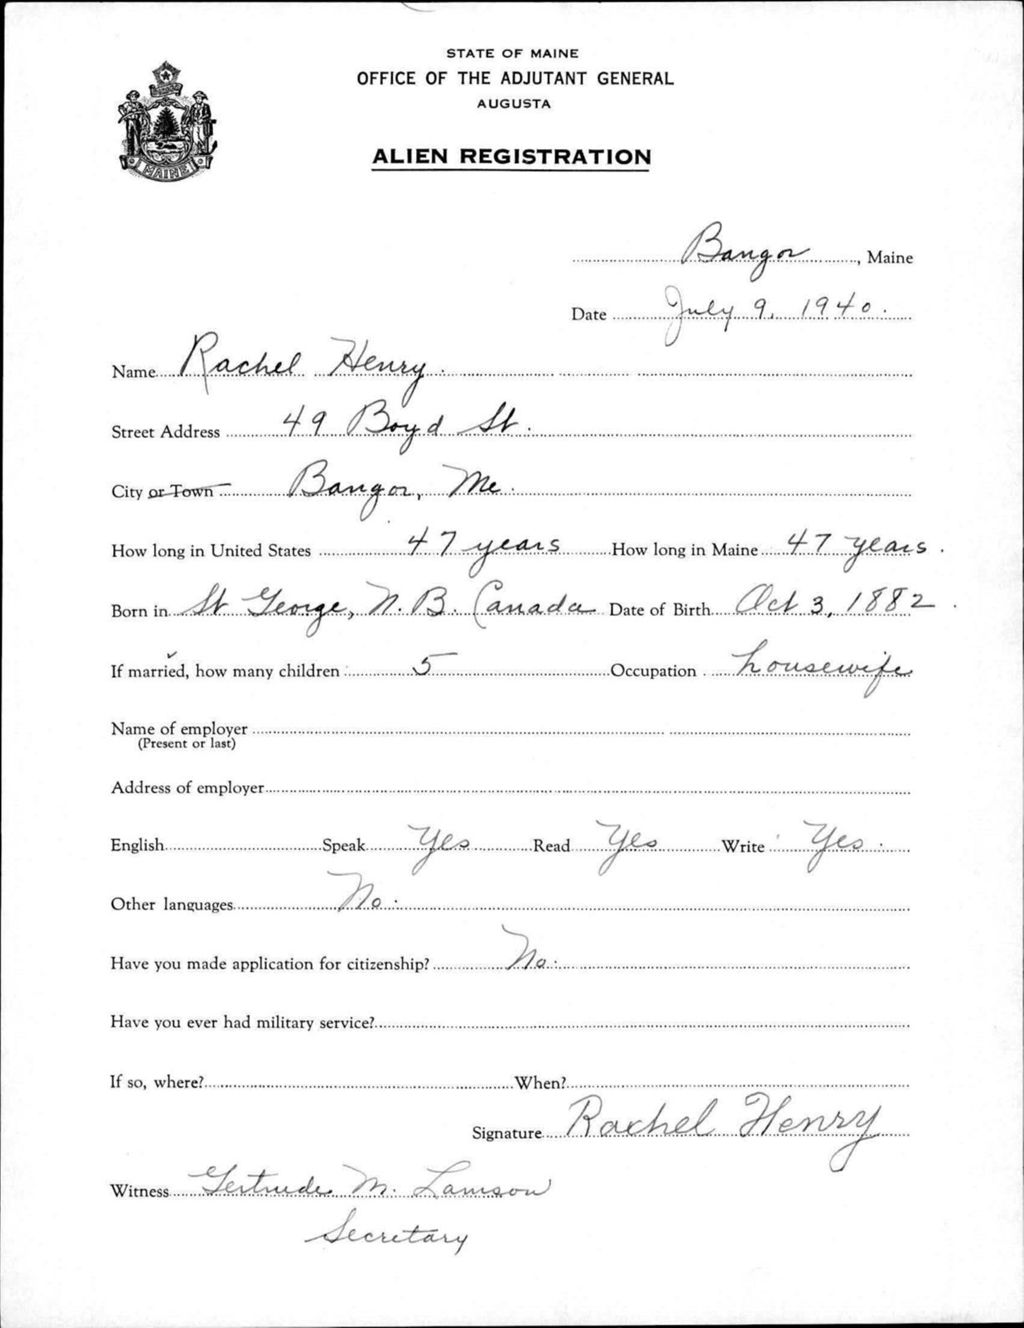 STATE OF MAINE
OFFICE OF THE ADJUTANT GENERAL
AUGUSTA
ALIEN REGISTRATION
MAINE
Bangor, Maine
Date July 9, 1940.
Name Rachel Henry.
Street Address 49 Boyd St.
City or Town Bangor, Me.
How long in United States 47 years How long in Maine 47 years.
Born in St George, N. B. Canada Date of Birth Oct 3, 1882.
If married, how many children 5 Occupation housewife
Name of employer
(Present or last)
Address of employer
English Speak Yes Read Yes Write Yes.
Other languages No.
Have you made application for citizenship? No.
Have you ever had military service?
If so, where? When?
Signature Rachel Henry
Witness Gertrude M. Lamson
Secretary